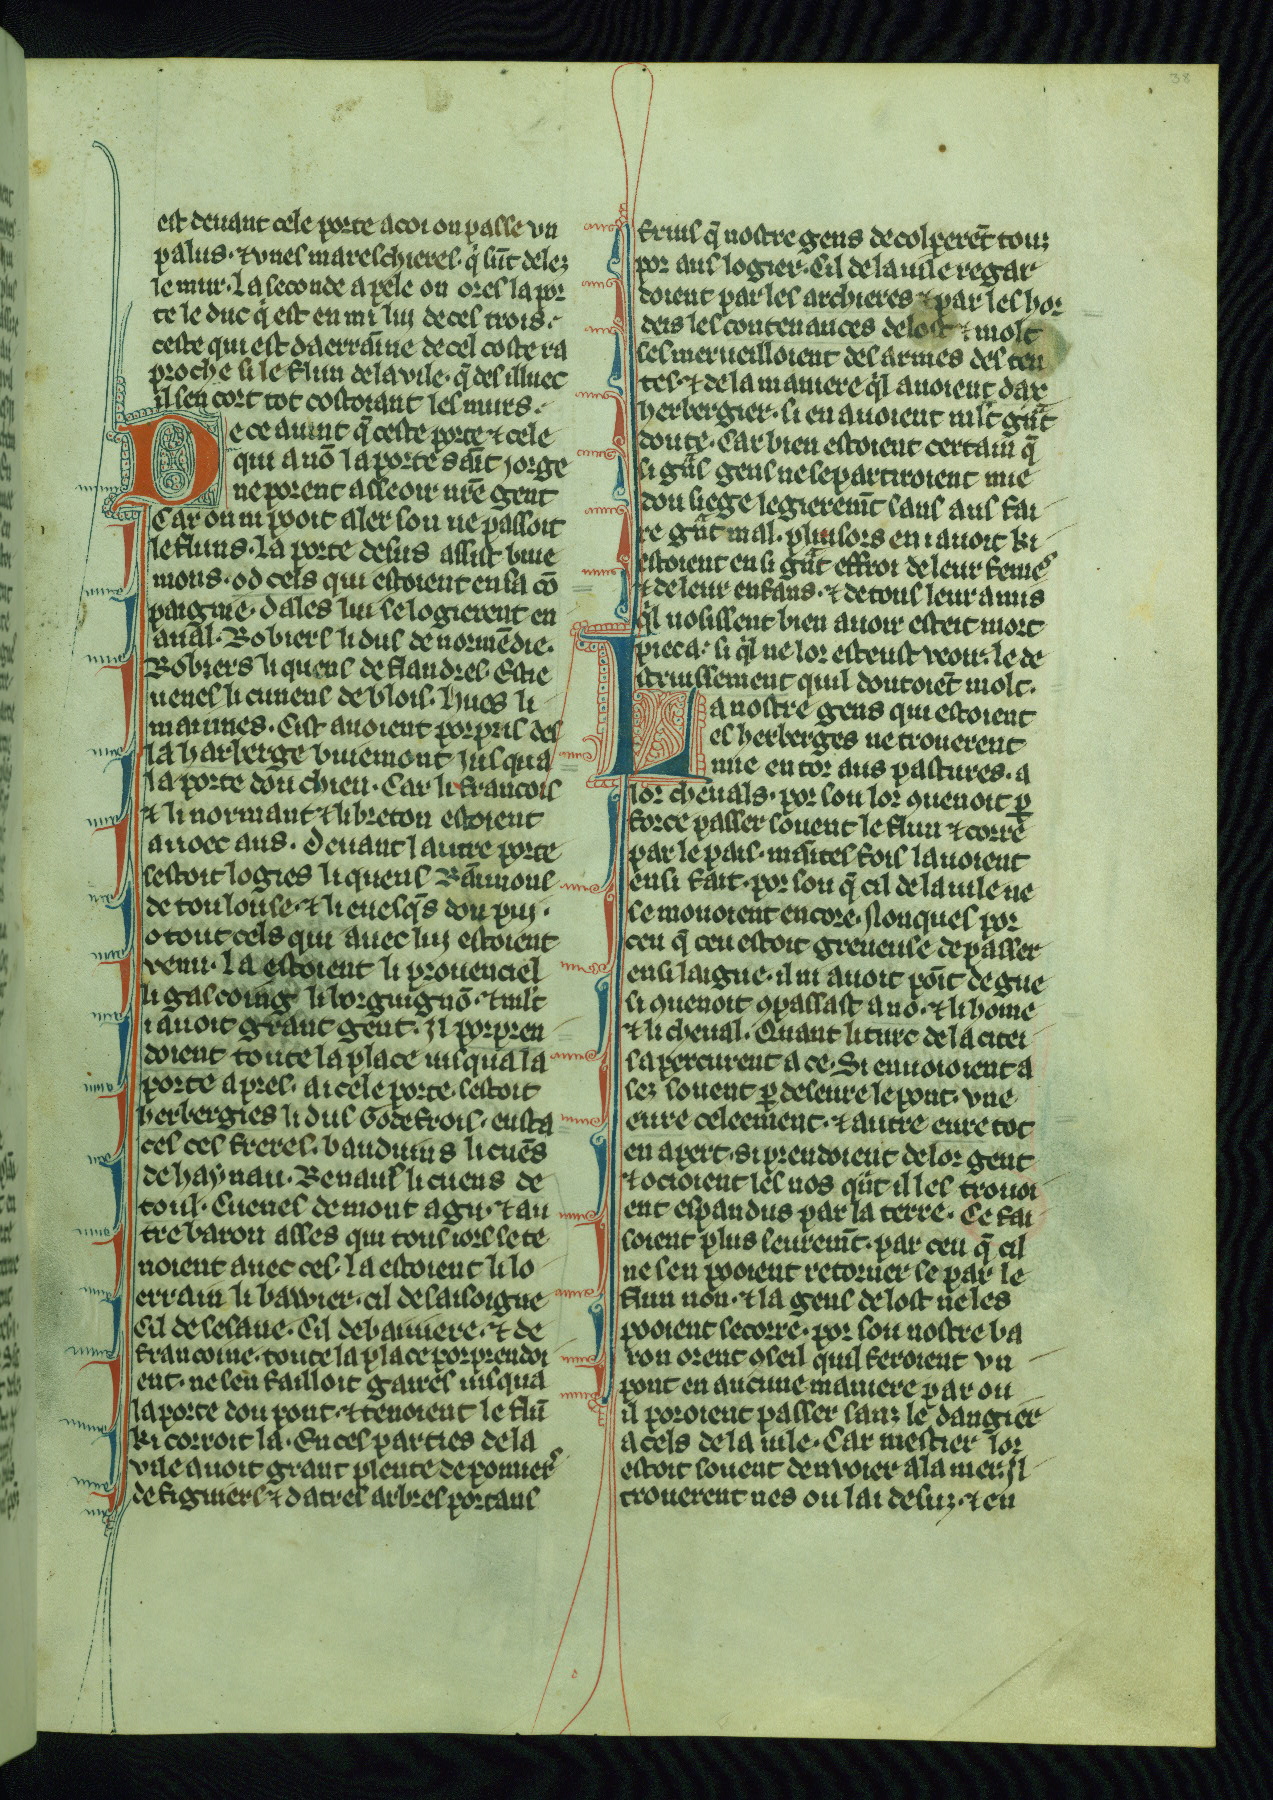 38
est deuant cele porte a coi on passe vn
palus · ⁊ vnes mareschieres · q̇ sūt delez
le mur · La seconde apele on ores la por
te le duc q̇ est en mi lui de ces trois ·
ceste qui est daerraīne de cel coste ra
proche si le flun de la vile · q̄ des illuec
il sen cort tot costoiant les murs ·
De ce auint q̄ ceste porte ⁊ cele
qui a nō la porte saīt Jorge
ne porent asseoir nr̄e gent
Car on ni pooit aler sou ne passoit
le fluns · La porte desus assist buie
mons · od cels qui estoient en sa cō
paignie · Dales lui se logierent en
aual · Robiers li dus de normēdie ·
Robiers li quens de flandres · Estie
uenes li cuens de blois · Hues li
mainnes · Cist auoient porpris des
la harberge buiemont jusqua
la porte dou chien · Car li francois
⁊ li normant ⁊ li breton estoient
auoec aus · Deuant lautre porte
sestoit logies li quens Raīmons
de toulouse · ⁊ li euesq̄s dou pui ·
o tout cels qui auec lui estoient
venu · La estoient li prouenciel
li gascoing li borguignō · ⁊ ml't
i auoit grant gent · Il porpren
doient toute la place iusqua la
porte apres · Ai cele porte · sestoit
herbergies li dus Godefrois · eusta
ces ces freres · bauduins li cuēs
de haynau · Renaus li cuens de
toul · Cuenes de mont agu · ⁊ au
tre baron asses qui tous iors se te
noient auec ces · La estoient li lo
errain li bawier · cil de saisoigne
Cil de sesaue · Cil de bauiere · ⁊ de
franconie · toute la place porprendoi
ent · ne sen failloit gaires iusqua
la porte dou pont · ⁊ tenoient le flū
ki corroit la · En ces parties de la
vile auoit grant plente de pomiers
de figuiers ⁊ datres arbres portans
fruis q̄ nostre gens decolperēt touz
por aus logier · Cil de la uile regar
doient par les archieres ⁊ par les hor
deis les contenances de lost ⁊ molt
ses merueilloient des armes des ten
tes · ⁊ de la maniere q̇l auoient dax
herbergier · si en auoient mlt grāt
doute · Car bien estoient certaiī q̄
si grās gens ne se partiroient mie
dou siege legieremīt sans aus fai
re grāt mal · pluisors en i auoit ki
estoient en si grāt effroi de leur femes
⁊ de leur enfans · ⁊ de tous leur amis
q̇l uosissent bien auoir esteit mort
pieca · si q̇l ne lor esteust veoir · le de
struissement quil doutoiēt molt ·
La nostre gens qui estoient
es herberges ne trouerent
mie entor aus pastures · a
lor cheuals · por sou lor ꝯuenoit ꝑ
force passer souent le flun ⁊ corre
par le pais · maītes fois lauoient
ensi fait · por sou q̄ cil de la uile ne
se mouoient encore · Nonques por
ceu q̄ ceu estoit greuense de passer
ensi laigue · il ni auoit poīt de gue
si ꝯuenoit ꝯpassast a no · ⁊ li home
⁊ li cheual · Quant li turc de la citei
sapercurent a ce · Si enuoioient a
sez souent ꝑ deseure le pont · vne
eure celeement · ⁊ autre eure tot
en apert · si prendoient de lor gent
⁊ ocioient les nos qūt il les trouoi
ent espandus par la terre · Ce fai
soient plus seuremīt · par ceu q̄ cil
ne sen pooient retorner se par le
flun non · ⁊ la gens de lost ne les
pooient secorre · por sou nostre ba
ron orent ꝯseil quil feroient vn
pont en aucune maniere par ou
il poroient passer sanz le dangier
a cels de la uile · Car mestier lor
estoit souent denvoier a la mer · Il
trouerent nes ou lai desuz · ⁊ en